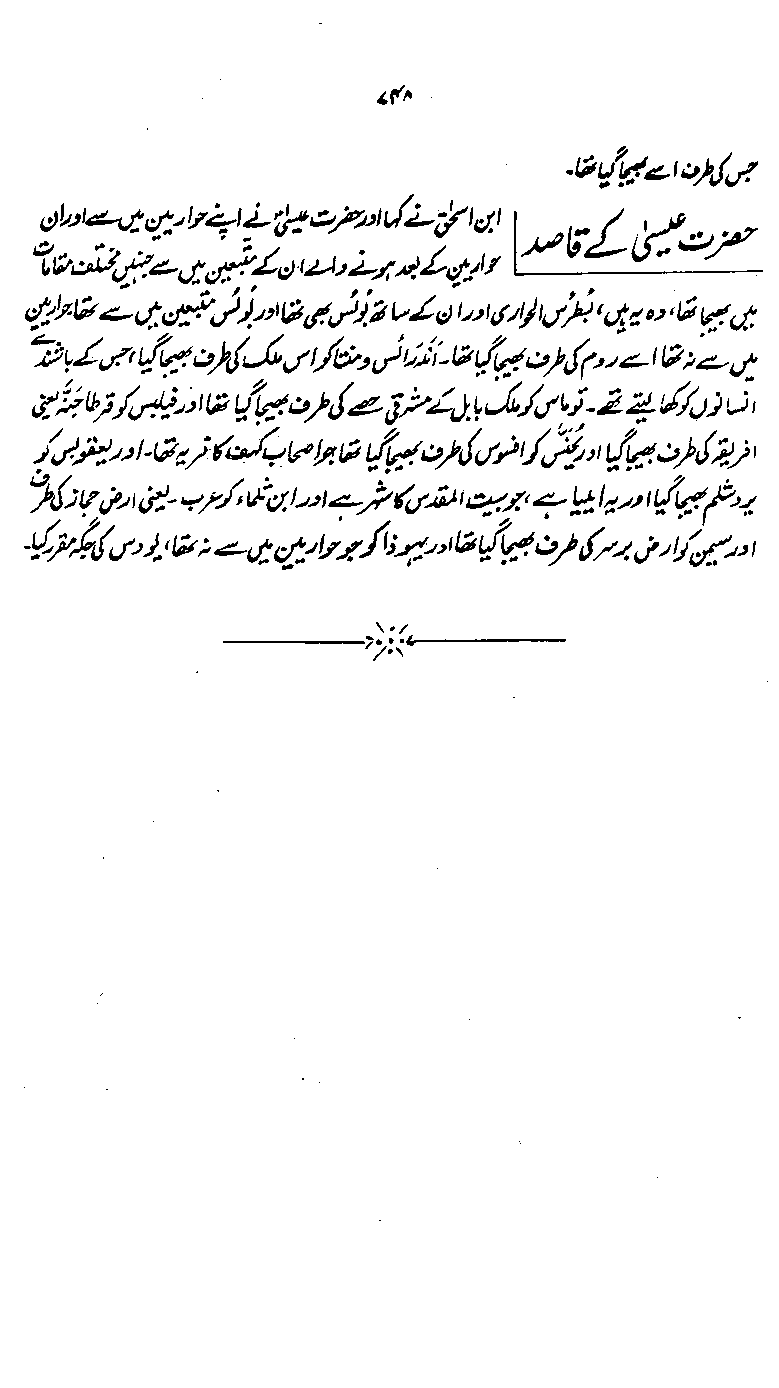 ۷۴۸
جس کی طرف اسے بھیجا گیا تھا۔
حضرت عیسیٰ کے قاصد
ابن اسحٰق نے کہا اور حضرت عیسیٰؑ نے اپنے حواریین میں سے اور ان
حواریین کے بعد ہونے والے ان کے متبعین میں سے جنہیں مختلف مقامات
میں بھیجا تھا، وہ یہ ہیں، بُطرُس الحواری اور ان کے ساتھ بُوئس بھی تھا اور بُوئس متبعین میں سے تھا حواریین
میں سے نہ تھا اسے روم کی طرف بھیجا گیا تھا۔ اَندَرَائس و منتا کو اس ملک کی طرف بھیجا گیا، جس کے باشندے
انسانوں کو کھا لیتے تھے۔ توماس کو ملک بابل کے مشرقی حصے کی طرف بھیجا گیا تھا اور فیلبس کو قرطاجَنَّہ یعنی
افریقہ کی طرف بھیجا گیا اور یُحَنَّس کو افسوس کی طرف بھیجا گیا تھا جو اصحاب کہف کا قریہ تھا۔ اور یعقوبس کو
یردشلم بھیجا گیا اور یہ ایلیا ہے، جو بیت المقدس کا شہر ہے اور ابن ثلماء کو عرب۔ یعنی ارض حجاز کی طرف
اور سیمن کو ارض بربر کی طرف بھیجا گیا تھا اور یہوذا کو جو حواریین میں سے نہ تھا، یودس کی جگہ مقرر کیا۔